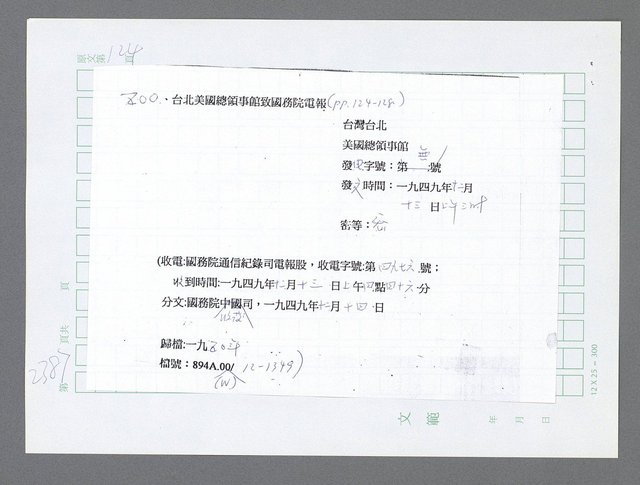 原文第124頁
五〇〇、台北美國總領事館致國務院電報(pp.124-128)
台灣台北
美國總領事館
發電字號：第無號
發文時間：一九四九年十二月
十三日上午三時
密等：密
(收電:國務院通信紀錄司電報股，收電字號:第四八七六號；
收到時間:一九四九年十二月十三日上午四點四十六分
分文:國務院中國司，一九四九年十二月十四日
歸檔:一九五〇年
檔號：894A.00/(W)12-1349)
第2387頁共 頁
12 X 25 - 300
文範
年 月 日